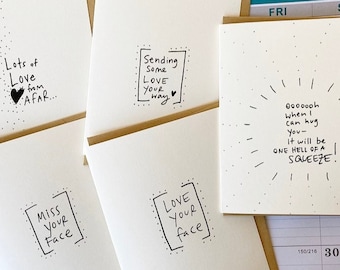 Lots of
Love
from
AFAR...
Sending
Some
LOVE
Your
Way
MISS
YOUR
Face
LOVE
YOUR
face
OOOOOOh
when I
can hug
you—
It will be
ONE HELL OF A
SQUEEZE!
FRI
30